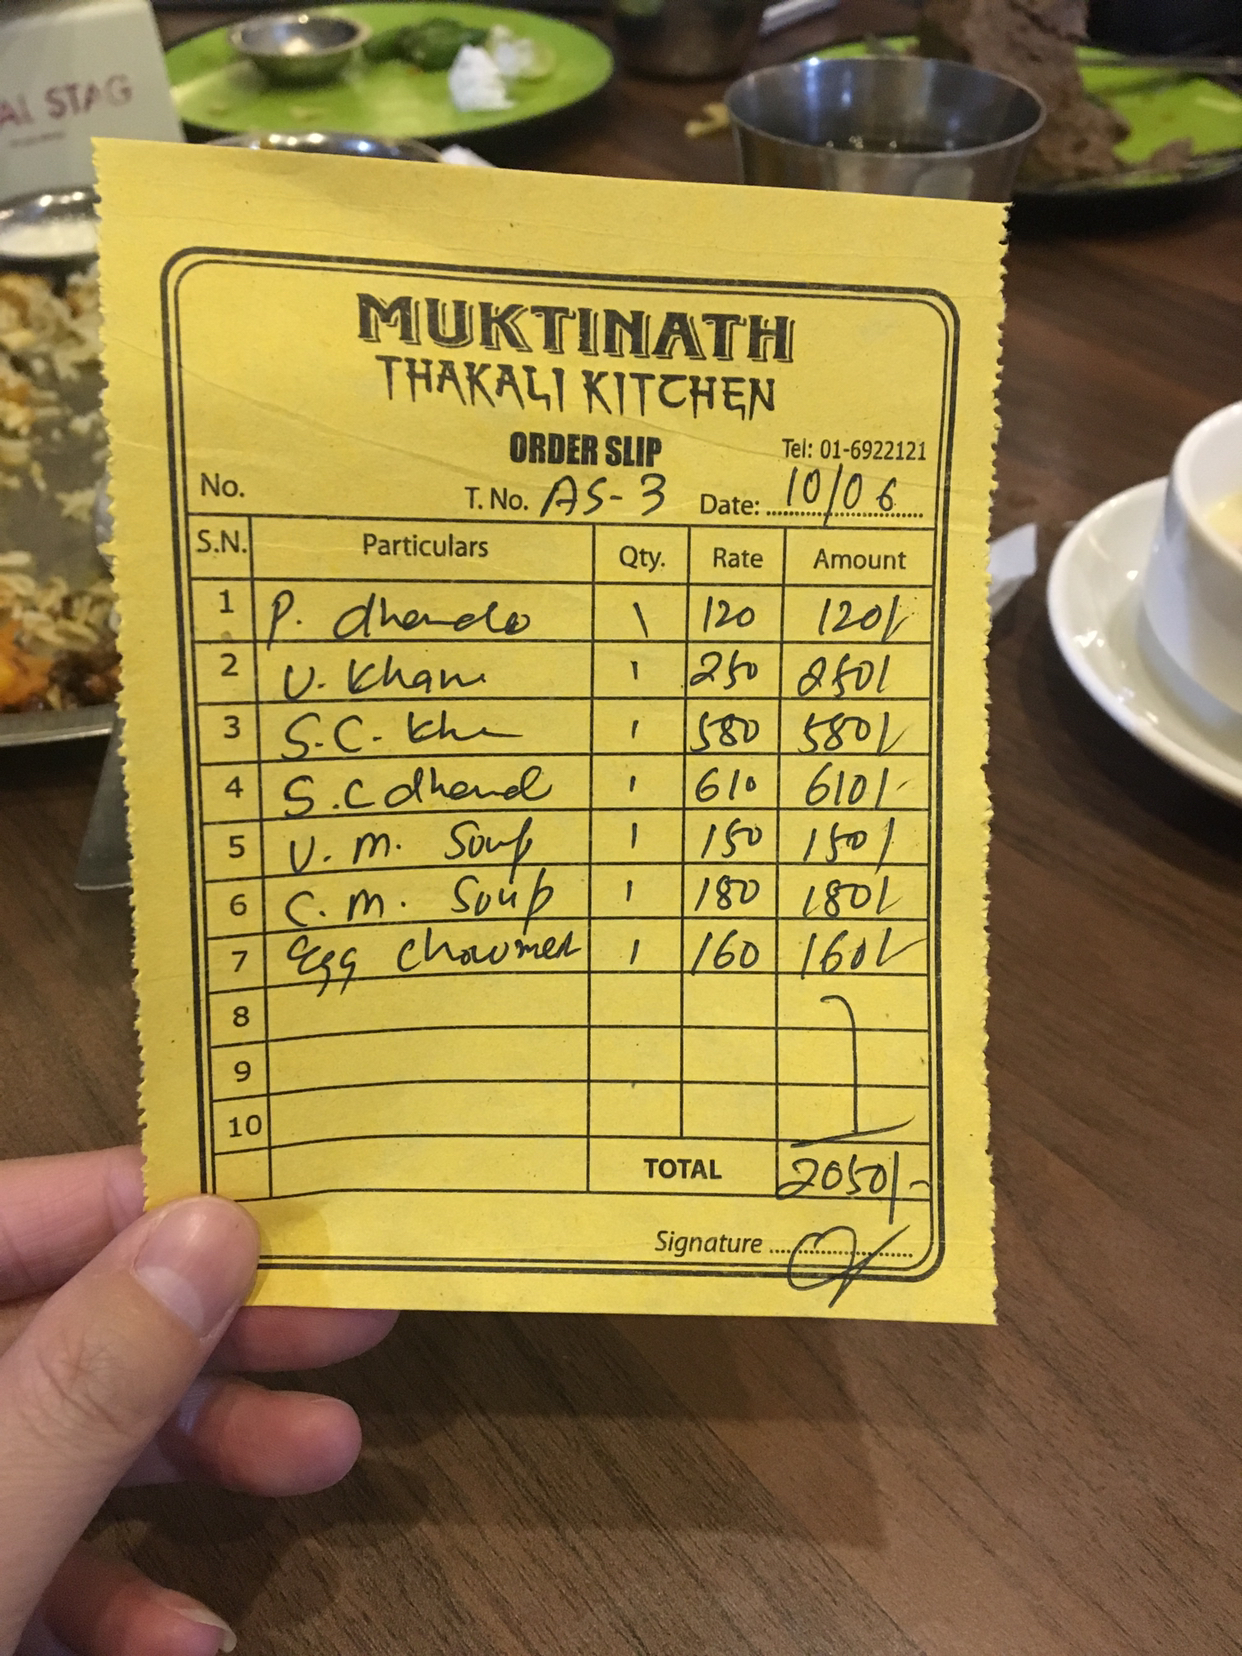 AL STAG
MUKTINATH
THAKALI KITCHEN
ORDER SLIP
Tel: 01-6922121
No. T. No. AS-3 Date: 10/06
S.N. Particulars Qty. Rate Amount
1 P. dhendo 1 120 120/-
2 V. Khana 1 250 250/
3 S.C. Kha 1 580 580/-
4 S.C dhend 1 610 610/-
5 V. M. Soup 1 150 150/
6 C. M. Soup 1 180 180/-
7 Egg Chowmen 1 160 160/-
8
9
10
TOTAL 2050/-
Signature